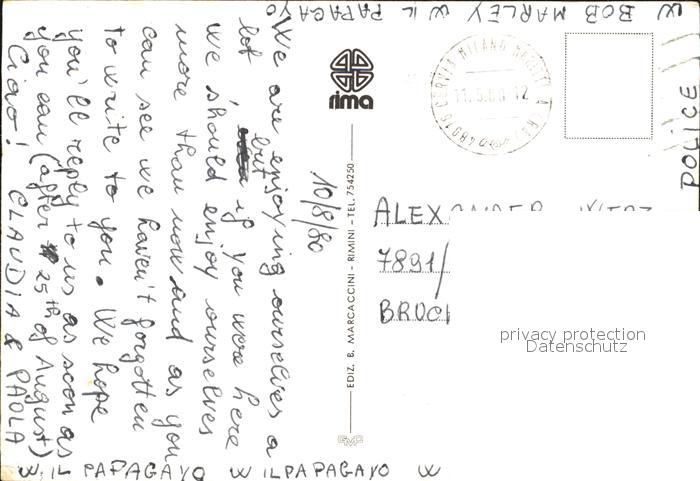 10/8/80
We are enjoying ourselves a
lot, but if you were here
we should enjoy ourselves
more than now and as you
can see we haven't forgotten
to write to you. We hope
you'll reply to us as soon as
you can (after 25th of August)
Ciao! CLAUDIA & PAOLA
W IL PAPAGAYO W IL PAPAGAYO W
W BOB MARLEY W IL PAPAGAYO
POLICE
rima
EDIZ. B. MARCACCINI - RIMINI - TEL. 754250
CERVIA MILANO MARITTIMA
48016
ALEXANDER
7891/
BRUCH
privacy protection
Datenschutz